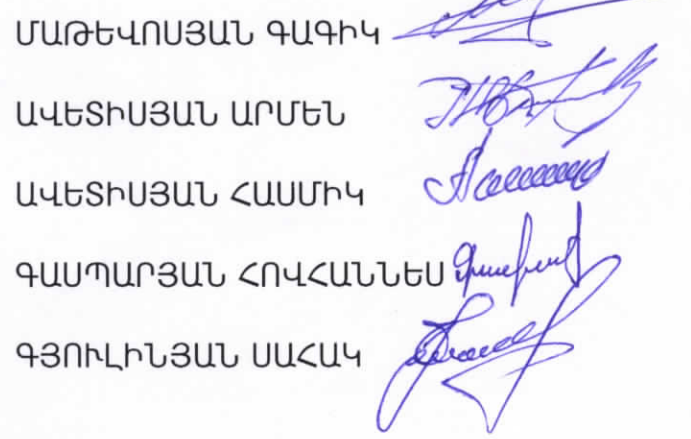 ՄԱԹԵՎՈՍՅԱՆ ԳԱԳԻԿ
ԱՎԵՏԻՍՅԱՆ ԱՐՄԵՆ
ԱՎԵՏԻՍՅԱՆ ՀԱՍՄԻԿ
ԳԱՍՊԱՐՅԱՆ ՀՈՎՀԱՆՆԵՍ
ԳՅՈՒԼԻՆՅԱՆ ՍԱՀԱԿ